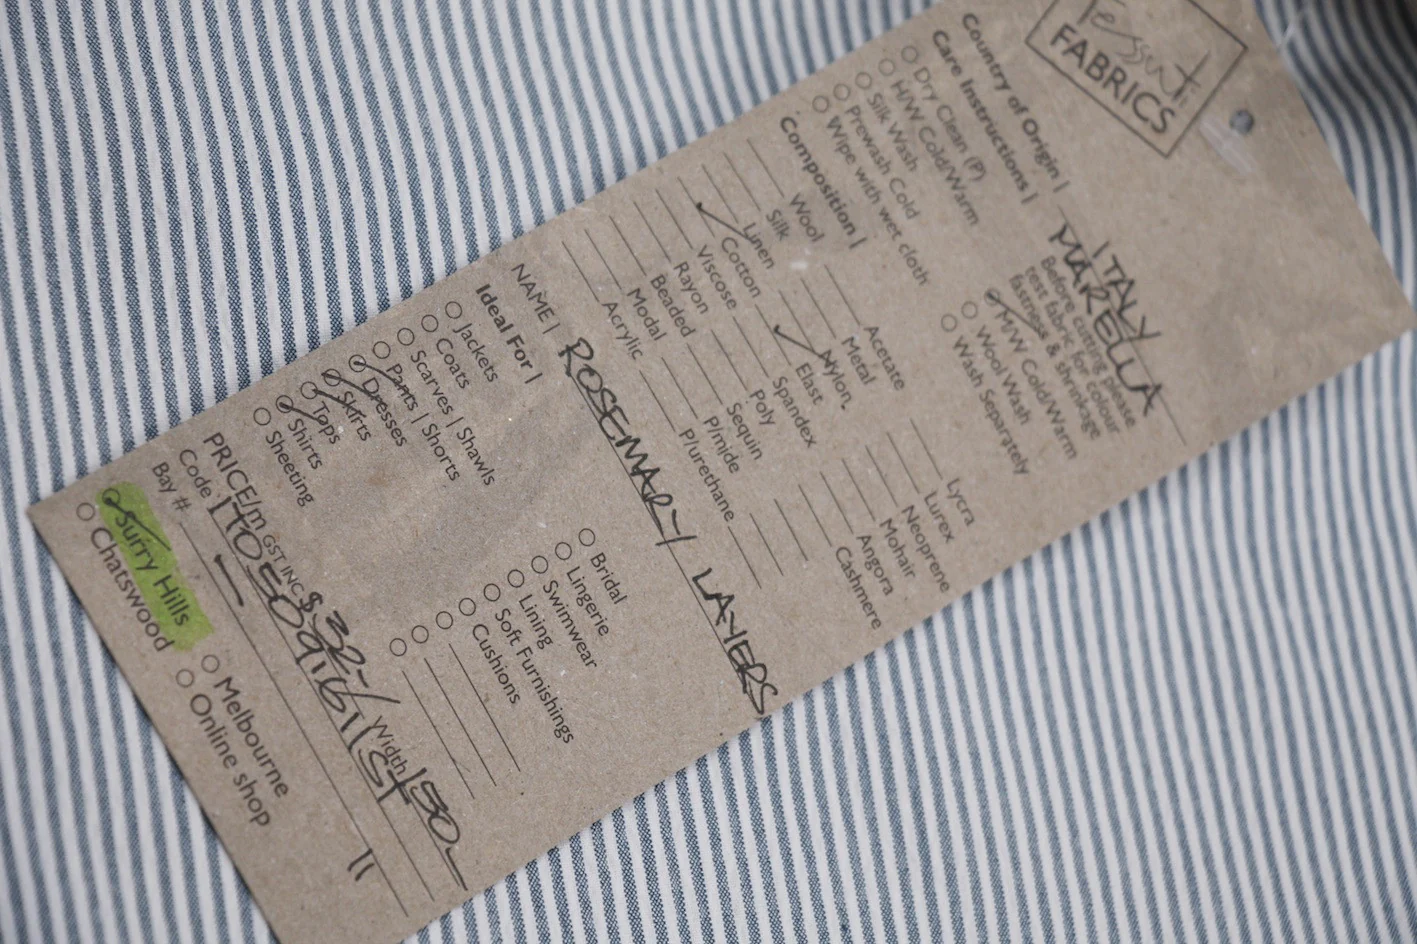 Tessuti
FABRICS
Country of Origin | ITALY
MARELLA
Care Instructions | Before cutting please
test fabric for colour
fastness & shrinkage
Dry Clean (P)
H/W Cold/Warm
Silk Wash
Prewash Cold
Wipe with wet cloth
M/W Cold/Warm
Wool Wash
Wash Separately
Composition |
Wool Acetate Lycra
Silk Metal Lurex
Linen Nylon Neoprene
Cotton Elast Mohair
Viscose Spandex Angora
Rayon Poly Cashmere
Beaded Sequin
Modal P/mide
Acrylic P/urethane
NAME | ROSEMARY LAYERS
Ideal For |
Jackets Bridal
Coats Lingerie
Scarves | Shawls Swimwear
Pants | Shorts Lining
Dresses Soft Furnishings
Skirts Cushions
Tops
Shirts
Sheeting
PRICE/m GST INC $32- Width 150-
Code
Bay # 11
Surry Hills Melbourne
Chatswood Online shop